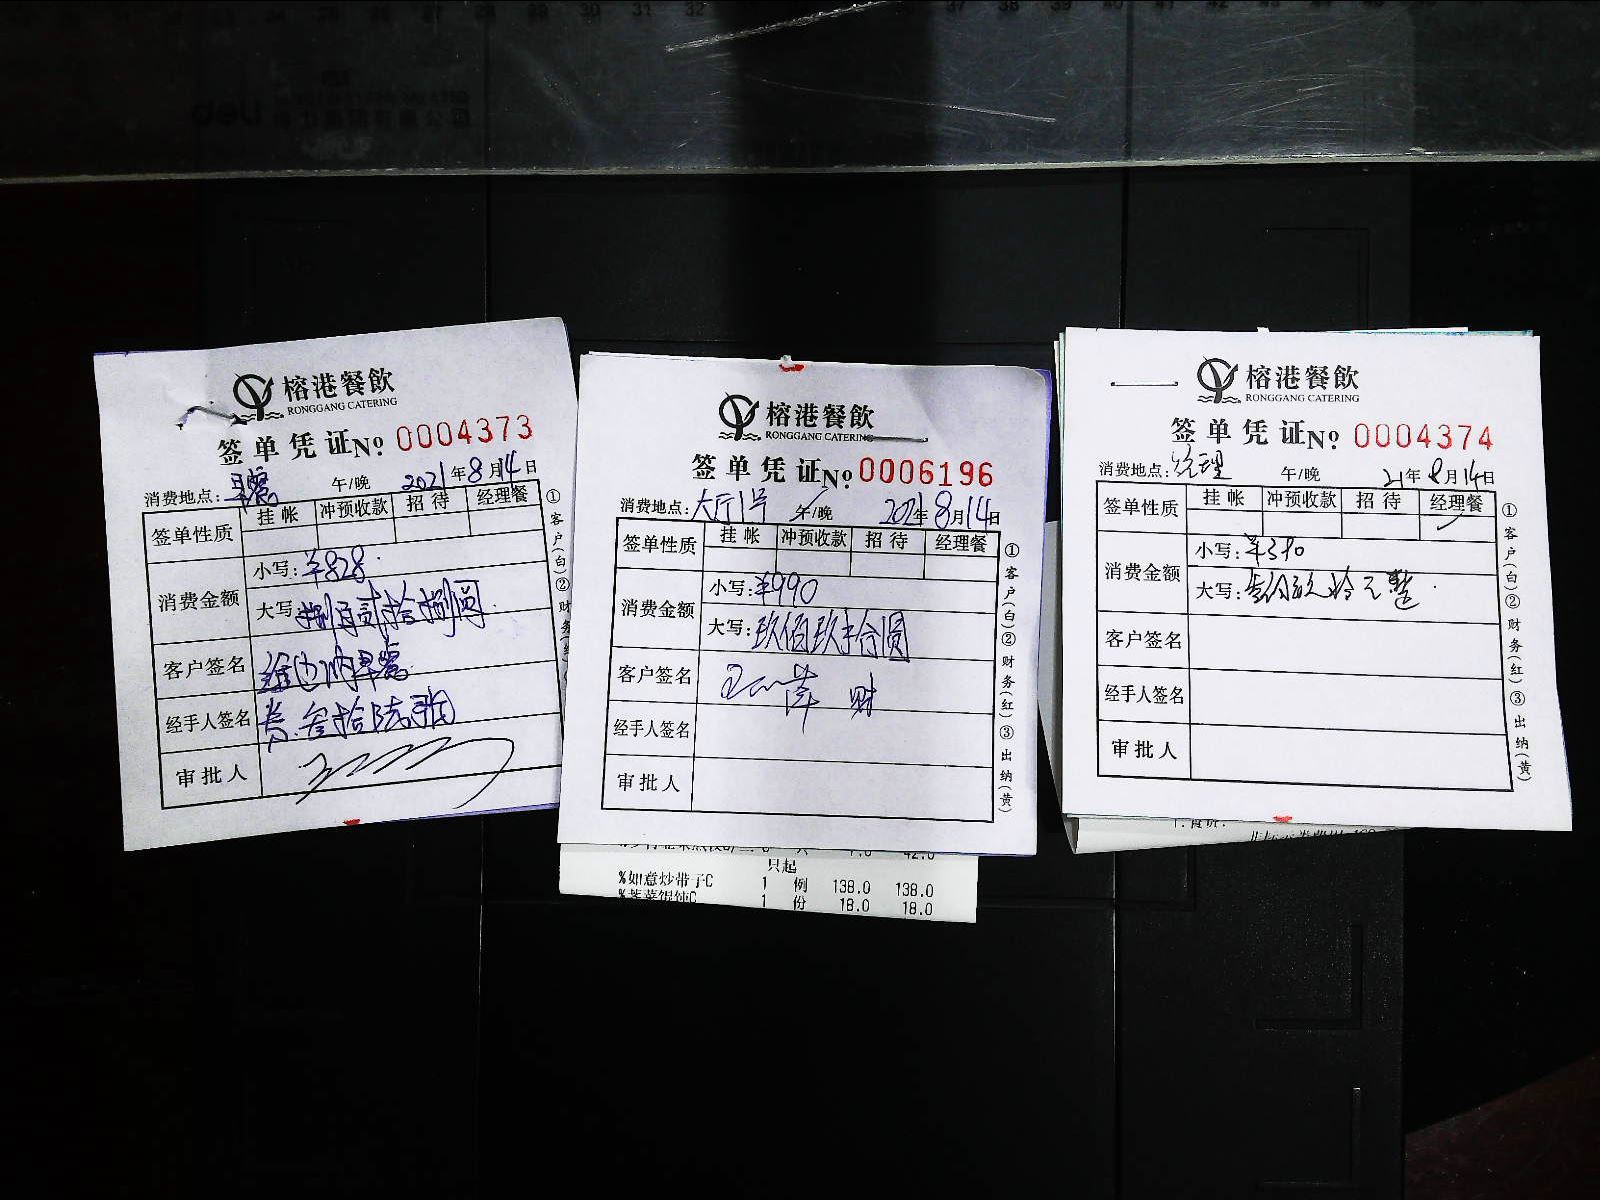 榕港餐飲
RONGGANG CATERING
签单凭证No 0004373
消费地点: 早餐 午/晚 2021年8月14日
签单性质 挂帐 冲预收款 招待 经理餐
消费金额 小写:¥828
大写:捌百贰拾捌圆
客户签名 维也纳早餐
经手人签名 叁拾陆张
审批人
①客户(白)②财务
榕港餐飲
RONGGANG CATERING
签单凭证No 0006196
消费地点:大厅1号 午/晚 2021年8月14日
签单性质 挂帐 冲预收款 招待 经理餐
消费金额 小写:¥990
大写:玖佰玖拾圆
客户签名
经手人签名
审批人
①客户(白)②财务(红)③出纳(黄)
只起
%如意炒带子C 1 例 138.0 138.0
1 份 18.0 18.0
榕港餐飲
RONGGANG CATERING
签单凭证No 0004374
消费地点:经理 午/晚 21年8月14日
签单性质 挂帐 冲预收款 招待 经理餐
消费金额 小写:¥390
大写:叁佰玖拾元整
客户签名
经手人签名
审批人
①客户(白)②财务(红)③出纳(黄)